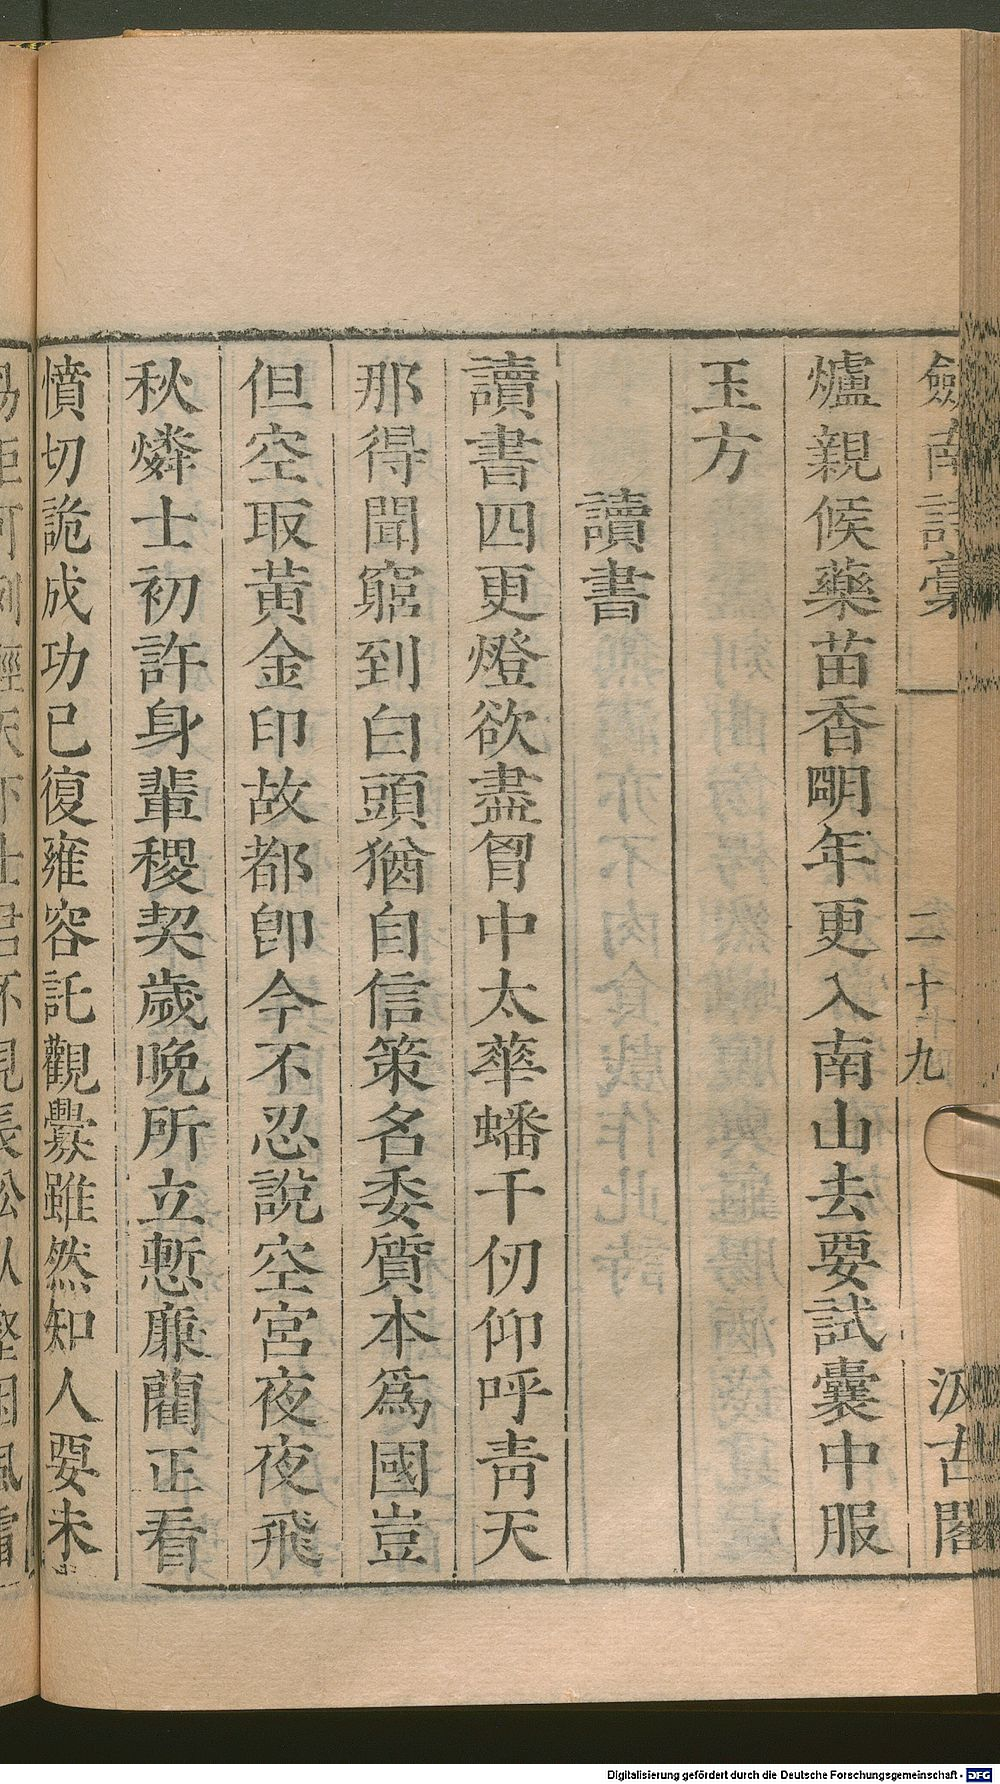 劍南詩稾
二十九
汲古閣
爐親候藥苗香朙年更入南山去要試囊中服
玉方
讀書
讀書四更燈欲盡胷中太華蟠千仞仰呼靑天
那得聞窮到白頭猶自信策名委質本爲國豈
但空取黃金印故都卽今不忍說空宮夜夜飛
秋燐士初許身輩稷契歲晚所立慙廉藺正看
憤切詭成功已復雍容託觀釁雖然知人要未
Digitalisierung gefördert durch die Deutsche Forschungsgemeinschaft - DFG